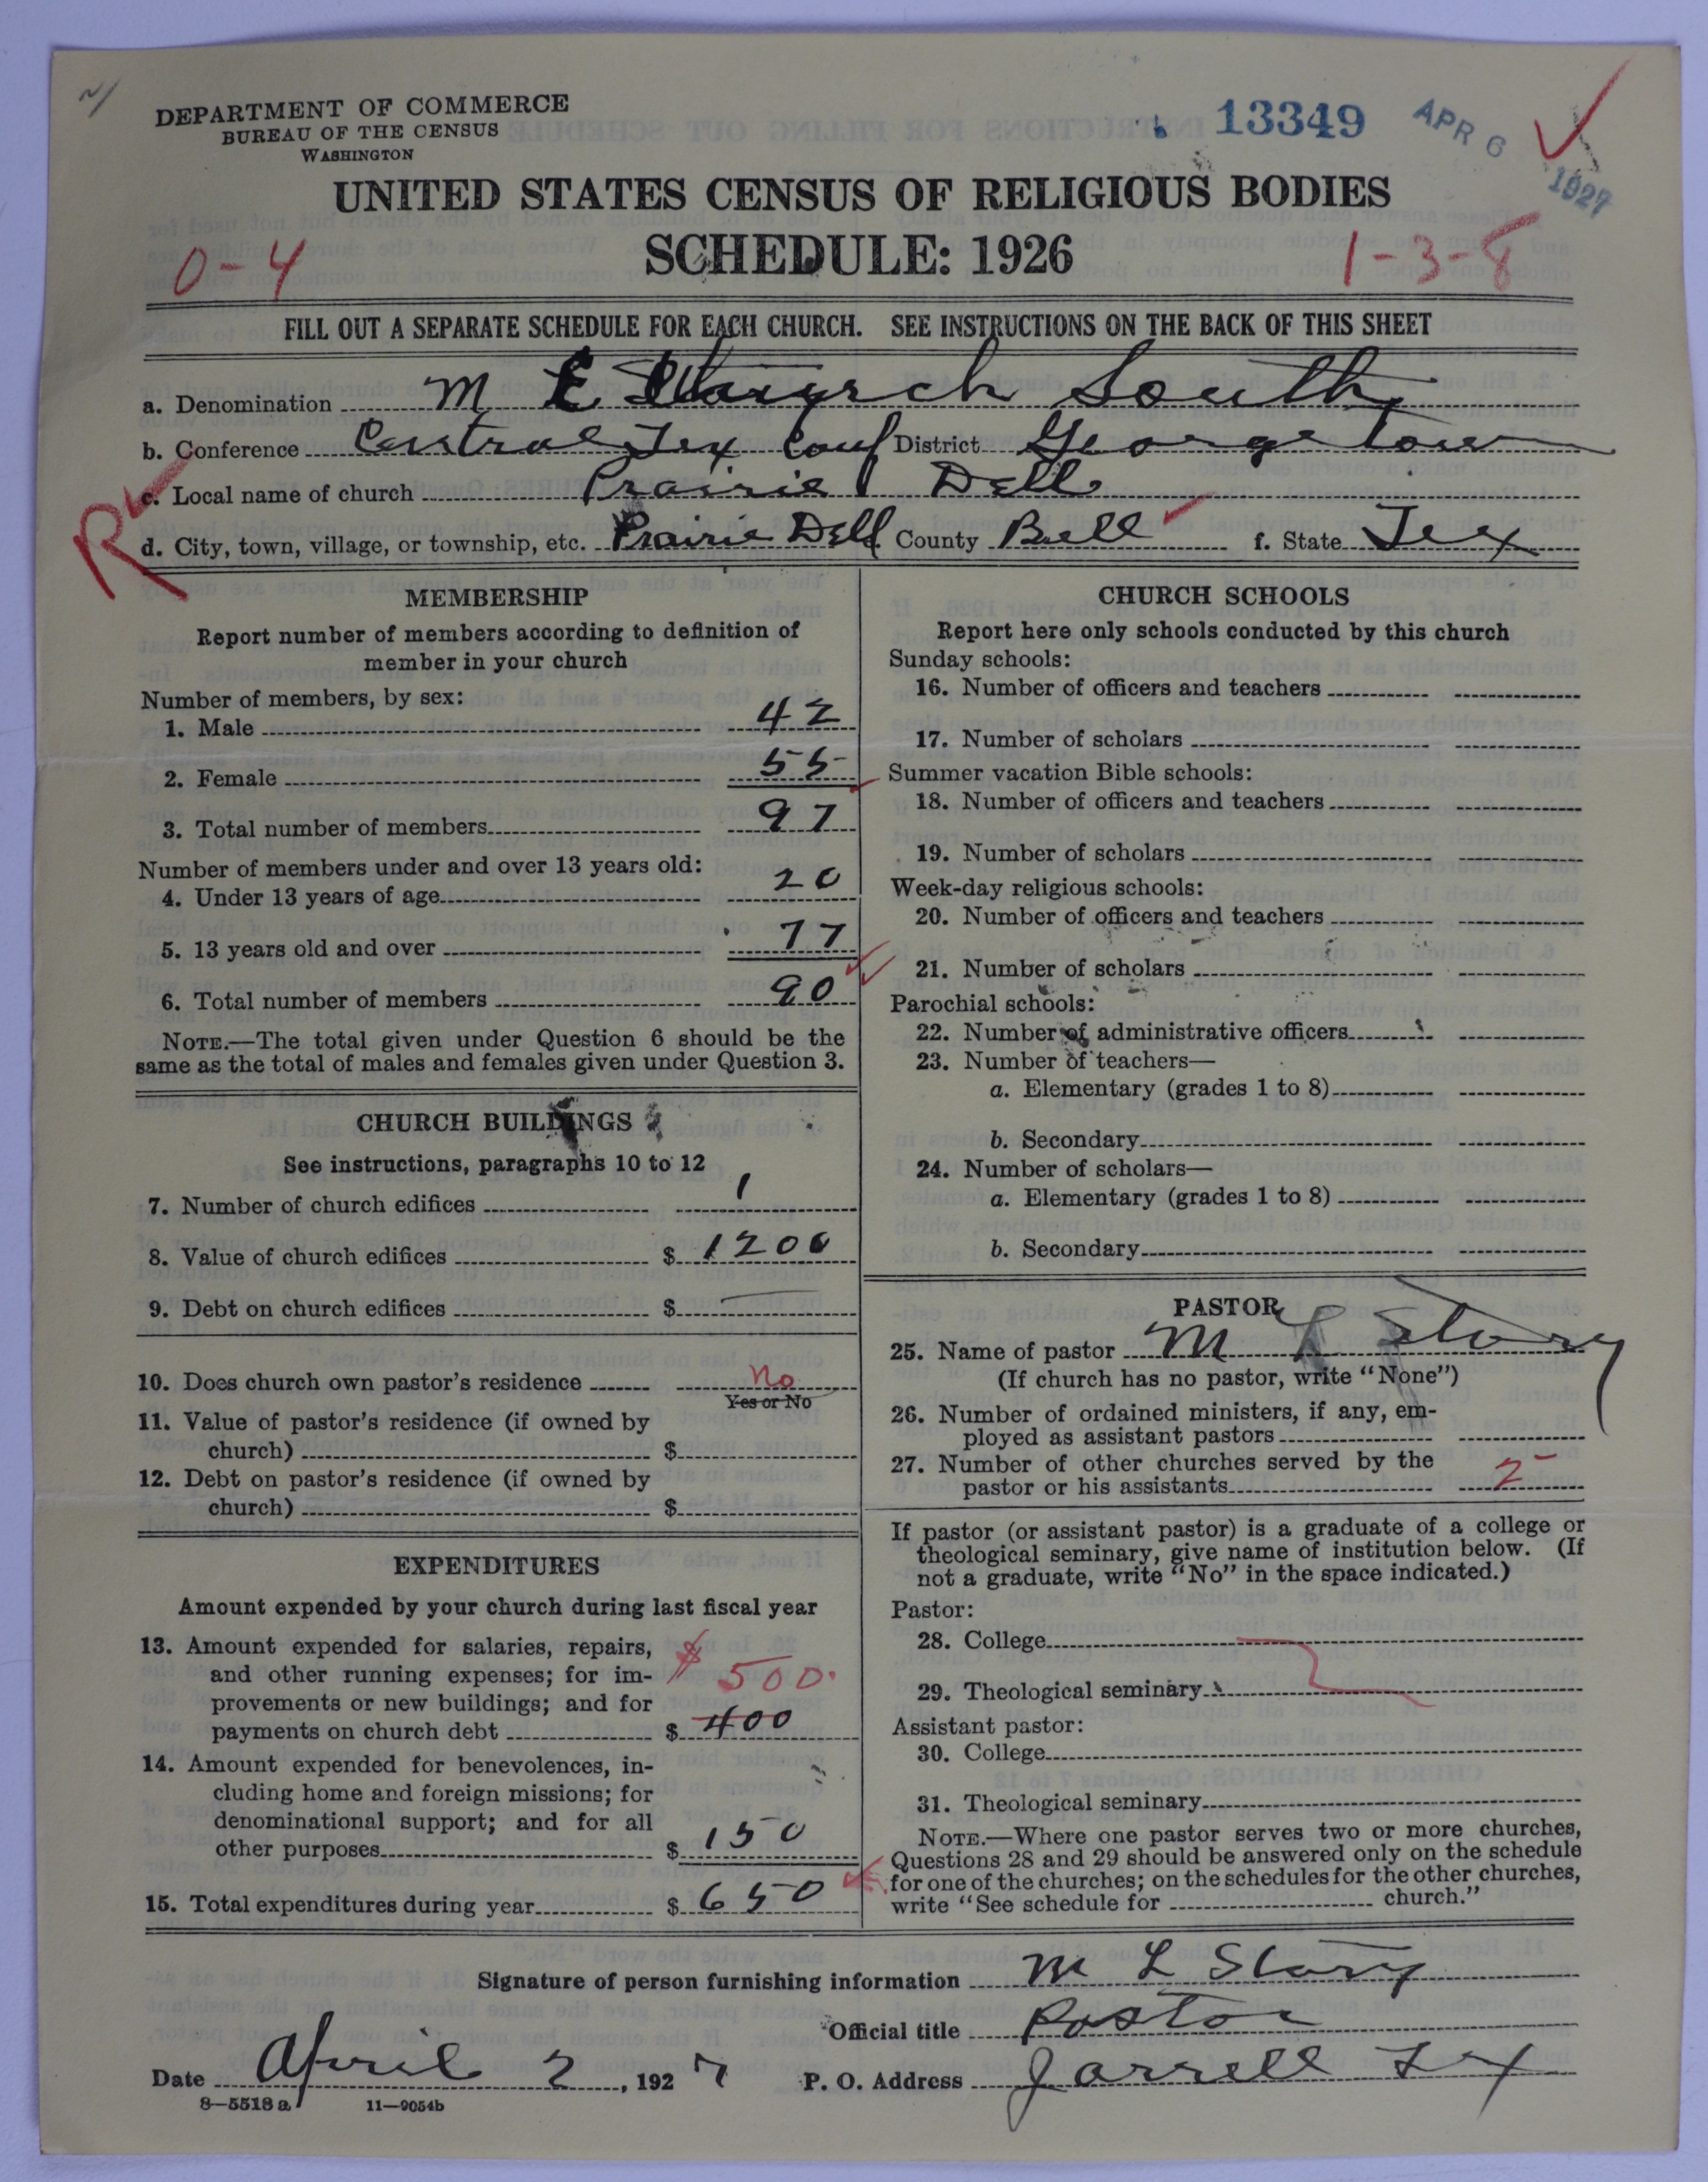 DEPARTMENT OF COMMERCE
BUREAU OF THE CENSUS
WASHINGTON
13349
APR 6 1927
UNITED STATES CENSUS OF RELIGIOUS BODIES
SCHEDULE: 1926
0-4
1-3-8
FILL OUT A SEPARATE SCHEDULE FOR EACH CHURCH. SEE INSTRUCTIONS ON THE BACK OF THIS SHEET
a. Denomination M E Church South
b. Conference Central Tex Conf District Georgetown
c. Local name of church Prairie Dell
R
d. City, town, village, or township, etc. Prairie Dell e. County Bell f. State Tex
MEMBERSHIP
Report number of members according to definition of
member in your church
Number of members, by sex:
1. Male 42
2. Female 55
3. Total number of members 97
Number of members under and over 13 years old:
4. Under 13 years of age 20
5. 13 years old and over 77
6. Total number of members 90
NOTE.—The total given under Question 6 should be the
same as the total of males and females given under Question 3.
CHURCH BUILDINGS
See instructions, paragraphs 10 to 12
7. Number of church edifices 1
8. Value of church edifices $ 1200
9. Debt on church edifices $ —
10. Does church own pastor's residence No
Yes or No
11. Value of pastor's residence (if owned by
church) $
12. Debt on pastor's residence (if owned by
church) $
EXPENDITURES
Amount expended by your church during last fiscal year
13. Amount expended for salaries, repairs,
and other running expenses; for im-
$ 500.
provements or new buildings; and for
payments on church debt $ 400
14. Amount expended for benevolences, in-
cluding home and foreign missions; for
denominational support; and for all
other purposes $ 150
15. Total expenditures during year $ 650
CHURCH SCHOOLS
Report here only schools conducted by this church
Sunday schools:
16. Number of officers and teachers
17. Number of scholars
Summer vacation Bible schools:
18. Number of officers and teachers
19. Number of scholars
Week-day religious schools:
20. Number of officers and teachers
21. Number of scholars
Parochial schools:
22. Number of administrative officers
23. Number of teachers—
a. Elementary (grades 1 to 8)
b. Secondary
24. Number of scholars—
a. Elementary (grades 1 to 8)
b. Secondary
PASTOR
25. Name of pastor M L Story
(If church has no pastor, write "None")
26. Number of ordained ministers, if any, em-
ployed as assistant pastors
27. Number of other churches served by the
pastor or his assistants 2
If pastor (or assistant pastor) is a graduate of a college or
theological seminary, give name of institution below. (If
not a graduate, write "No" in the space indicated.)
Pastor:
28. College
29. Theological seminary
Assistant pastor:
30. College
31. Theological seminary
NOTE.—Where one pastor serves two or more churches,
Questions 28 and 29 should be answered only on the schedule
for one of the churches; on the schedules for the other churches,
write "See schedule for church."
Signature of person furnishing information M L Story
Official title Pastor
Date April 2, 1927 P. O. Address Jarrell Tex
8—5518 a 11—9054b